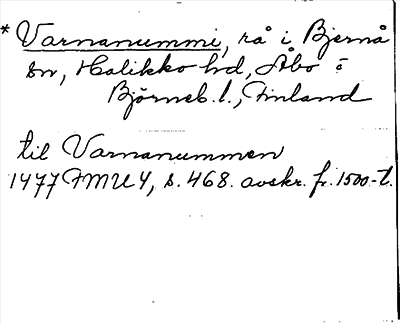 * Varnanummi, rå i Bjernå
sn, Halikko hd, Åbo o
Björneb. l., Finland
til Varnanummen
1477 FMU 4, s. 468. avskr. fr. 1500-t.